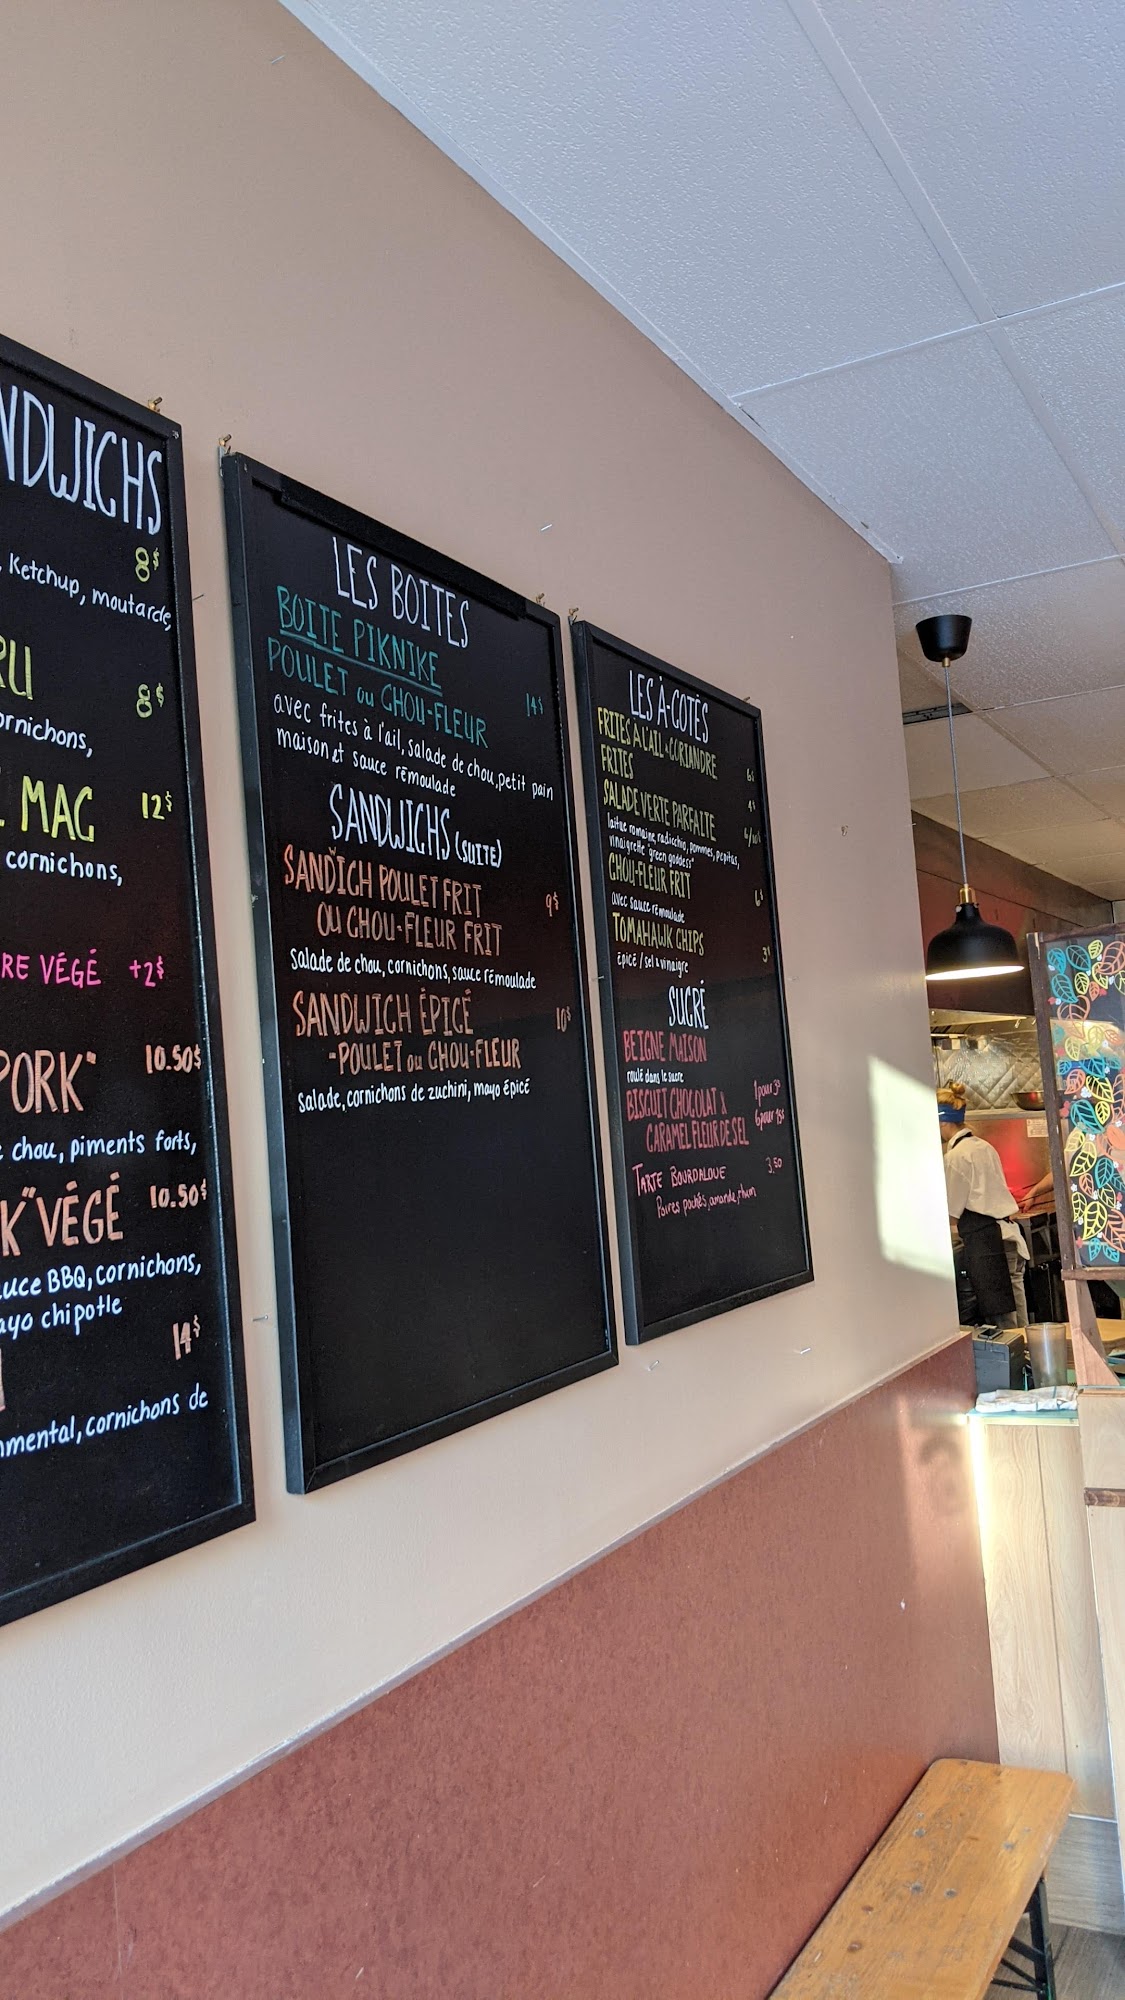 NDWICHS
8$
, Ketchup, moutarde,
RU 8$
ornichons,
MAC 12$
cornichons,
RE VÉGÉ +2$
PORK" 10.50$
chou, piments forts,
K" VÉGÉ 10.50$
uce BBQ, cornichons,
ayo chipotle
14$
mental, cornichons de
LES BOITES
BOITE PIKNIKE
POULET ou CHOU-FLEUR 14$
avec frites à l'ail, salade de chou, petit pain
maison et sauce rémoulade
SANDWICHS (SUITE)
SANDICH POULET FRIT
OU CHOU-FLEUR FRIT 9$
salade de chou, cornichons, sauce rémoulade
SANDWICH ÉPICÉ 10$
-POULET ou CHOU-FLEUR
salade, cornichons de zuchini, mayo épicé
LES À-COTÉS
FRITES À L'AIL & CORIANDRE 6$
FRITES 4$
SALADE VERTE PARFAITE
laitue romaine, radicchio, pommes, pepitas,
vinaigrette "green goddess"
CHOU-FLEUR FRIT 6$
avec sauce rémoulade
TOMAHAWK CHIPS 3$
épicé / sel & vinaigre
SUCRÉ
BEIGNE MAISON
roulé dans le sucre
BISCUIT CHOCOLAT & 1 pour 3$
CARAMEL FLEUR DE SEL 6 pour 15$
TARTE BOURDALOUE 3.50
Poires pochés, amande, rhum